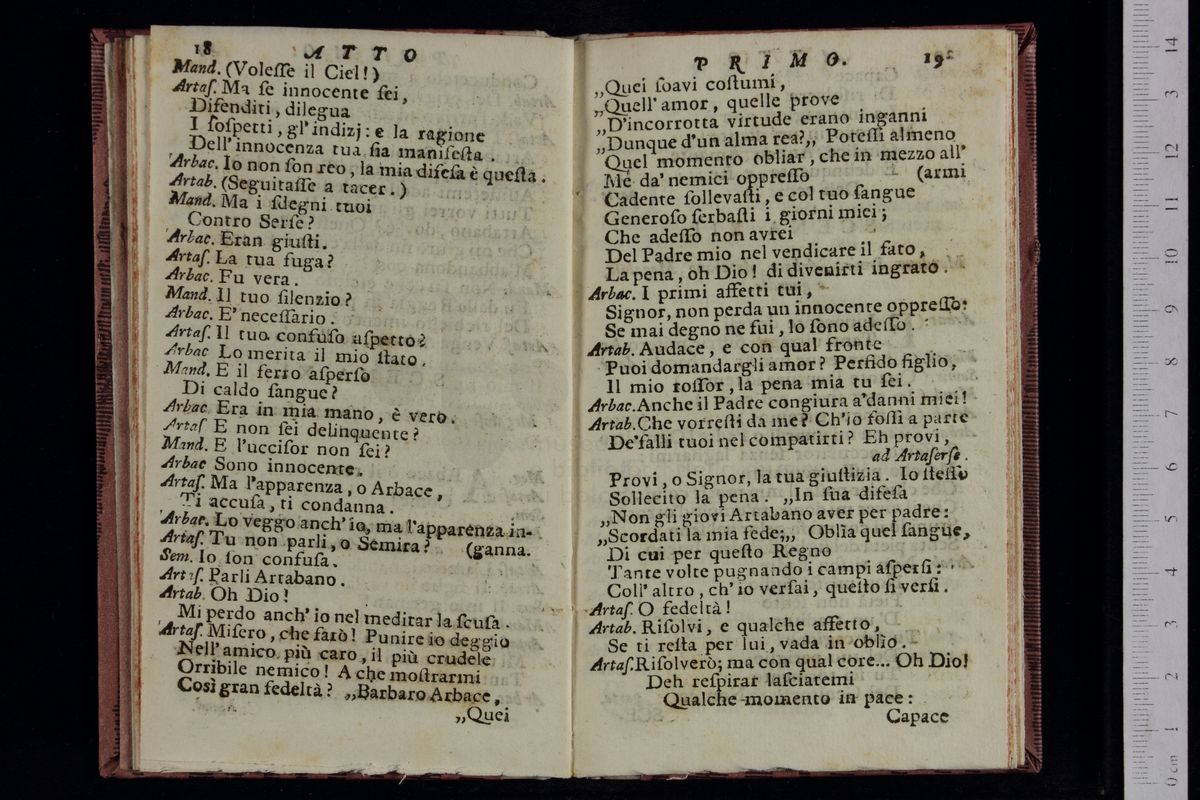 18 ATTO
Mand. (Voleſſe il Ciel!)
Artaſ. Ma ſe innocente ſei,
Difenditi, dilegua
I ſoſpetti, gl' indizj: e la ragione
Dell' innocenza tua ſia manifeſta.
Arbac. Io non ſon reo, la mia difeſa è queſta.
Artab. (Seguitaſſe a tacer.)
Mand. Ma i ſdegni tuoi
Contro Serſe?
Arbac. Eran giuſti.
Artaſ. La tua fuga?
Arbac. Fu vera.
Mand. Il tuo ſilenzio?
Arbac. E' neceſſario.
Artaſ. Il tuo confuſo aſpetto?
Arbac Lo merita il mio ſtato.
Mand. E il ferro aſperſo
Di caldo ſangue?
Arbac. Era in mia mano, è vero.
Artaſ E non ſei delinquente?
Mand. E l'ucciſor non ſei?
Arbac Sono innocente.
Artaſ. Ma l'apparenza, o Arbace,
Ti accuſa, ti condanna.
Arbac. Lo veggo anch' io, ma l'apparenza in-
Artaſ. Tu non parli, o Semira? (ganna.
Sem. Io ſon confuſa.
Artaſ. Parli Artabano.
Artab. Oh Dio!
Mi perdo anch' io nel meditar la ſcuſa.
Artaſ. Miſero, che farò! Punire io deggio
Nell' amico più caro, il più crudele
Orribile nemico! A che moſtrarmi
Così gran fedeltà? „Barbaro Arbace,
„Quei
PRIMO. 19
„Quei ſoavi coſtumi,
„Quell' amor, quelle prove
„D'incorrotta virtude erano inganni
„Dunque d'un alma rea?„ Poteſſi almeno
Quel momento obliar, che in mezzo all'
Me da' nemici oppreſſo (armi
Cadente ſollevaſti, e col tuo ſangue
Generoſo ſerbaſti i giorni miei;
Che adeſſo non avrei
Del Padre mio nel vendicare il fato,
La pena, oh Dio! di divenirti ingrato.
Arbac. I primi affetti tui,
Signor, non perda un innocente oppreſſo:
Se mai degno ne fui, lo ſono adeſſo.
Artab. Audace, e con qual fronte
Puoi domandargli amor? Perfido figlio,
Il mio roſſor, la pena mia tu ſei.
Arbac. Anche il Padre congiura a'danni miei!
Artab. Che vorreſti da me? Ch'io foſſi a parte
De'falli tuoi nel compatirti? Eh provi,
ad Artaſerſe.
Provi, o Signor, la tua giuſtizia. Io ſteſſo
Sollecito la pena. „In ſua difeſa
„Non gli giovi Artabano aver per padre:
„Scordati la mia fede;„ Oblìa quel ſangue,
Di cui per queſto Regno
Tante volte pugnando i campi aſperſi:
Coll' altro, ch' io verſai, queſto ſi verſi.
Artaſ. O fedeltà!
Artab. Riſolvi, e qualche affetto,
Se ti reſta per lui, vada in oblìo.
Artaſ. Riſolverò; ma con qual core... Oh Dio!
Deh reſpirar laſciatemi
Qualche momento in pace:
Capace
14
13
12
11
10
9
8
7
6
5
4
3
2
1
0 cm